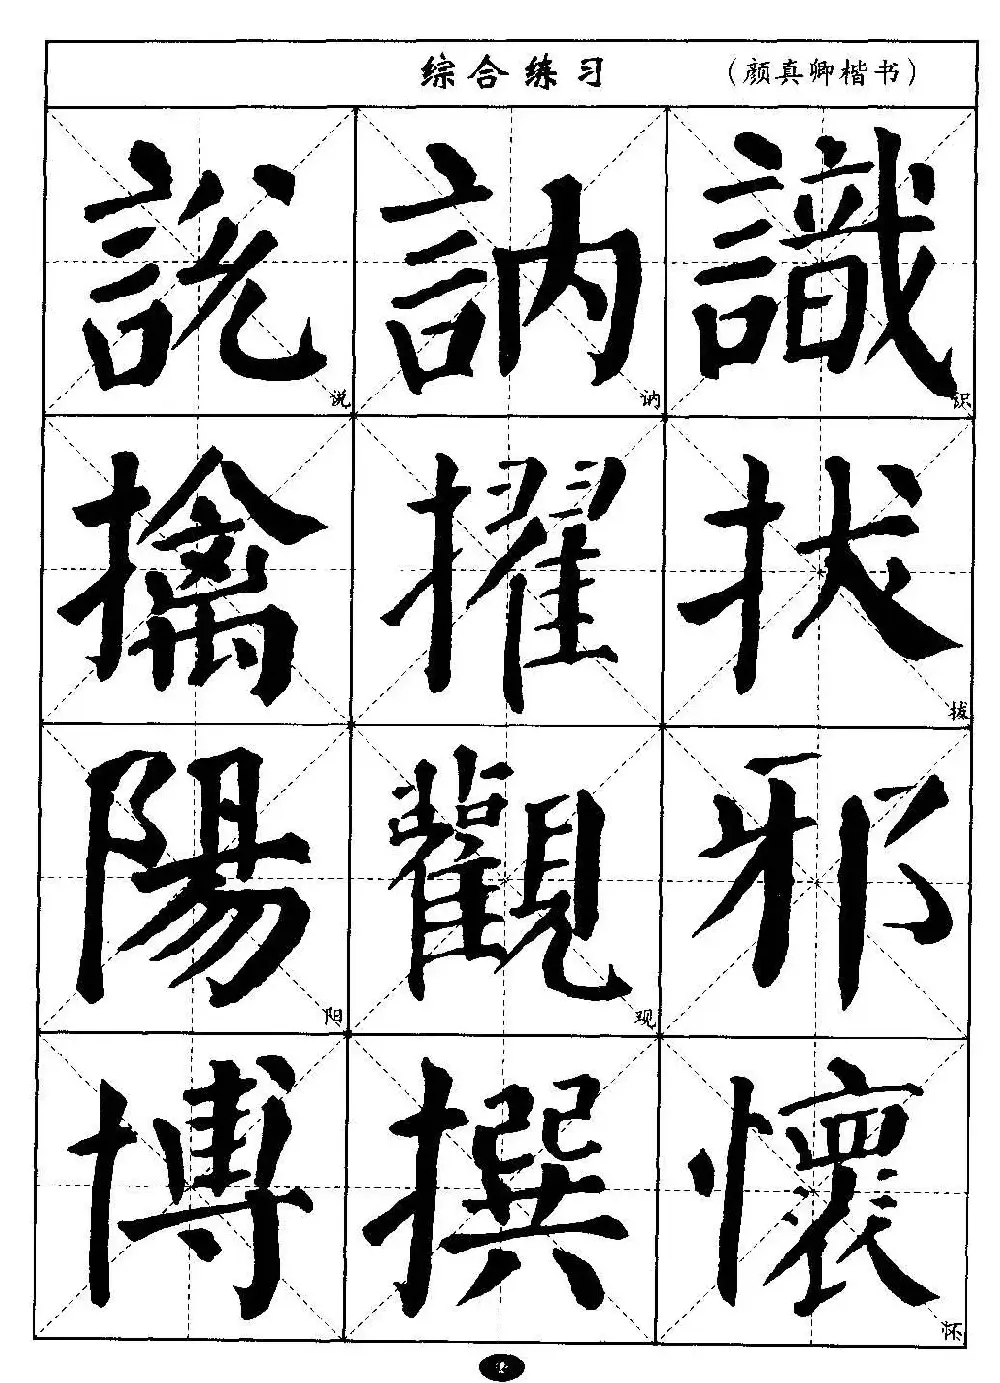 综合练习 （颜真卿楷书）
說 说 訥 讷 識 识
擒 擢 拔 拔
陽 阳 觀 观 邪
博 撰 懷 怀